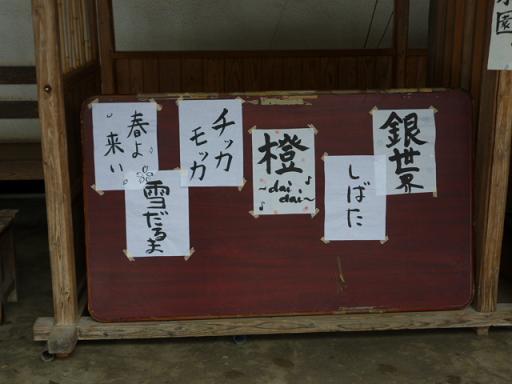 銀世界
しばた
橙
~dai
dai~
チッカ
モッカ
春よ
来い
雪だるま
園